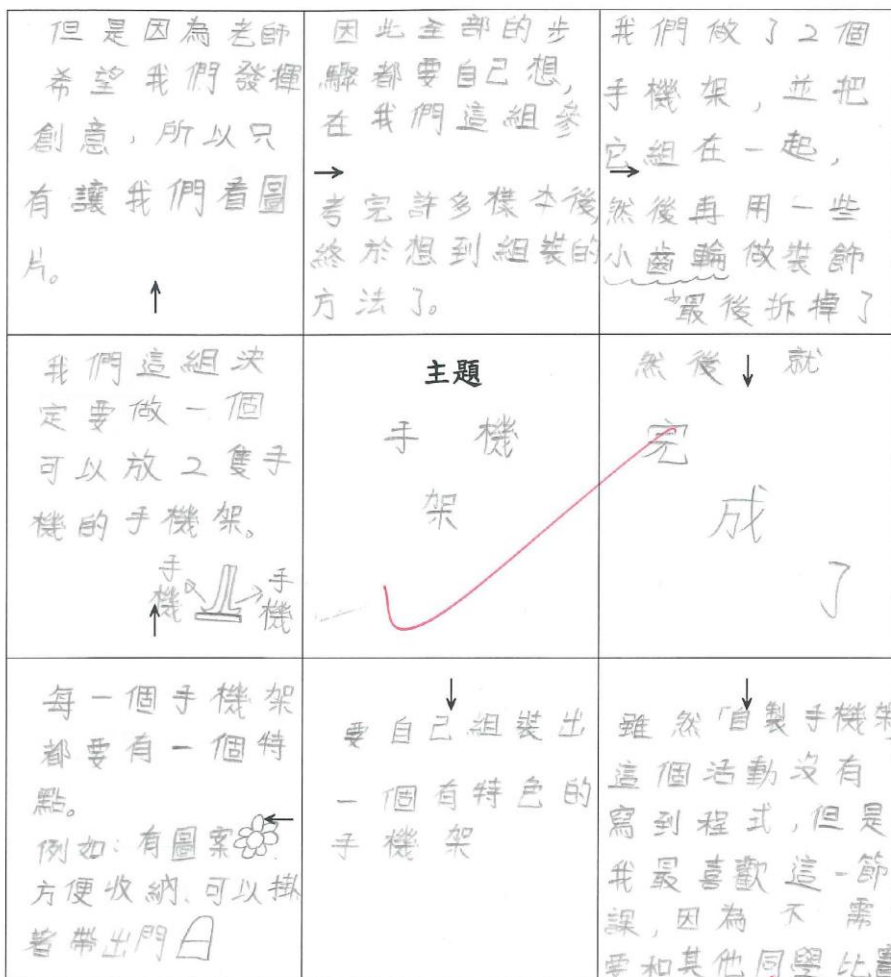 但是因為老師
希望我們發揮
創意，所以只
有讓我們看圖
片。
因此全部的步
驟都要自己想，
在我們這組參
考完許多樣本後
終於想到組裝的
方法了。
我們做了2個
手機架，並把
它組在一起，
然後再用一些
小齒輪做裝飾
*最後拆掉了
我們這組決
定要做一個
可以放2隻手
機的手機架。
手機
手機
主題
手機
架
然後就
完
成
了
每一個手機架
都要有一個特
點。
例如：有圖案
方便收納、可以掛
著帶出門
要自己組裝出
一個有特色的
手機架
雖然「自製手機架
這個活動沒有
寫到程式，但是
我最喜歡這一節
課，因為不需
要和其他同學比賽